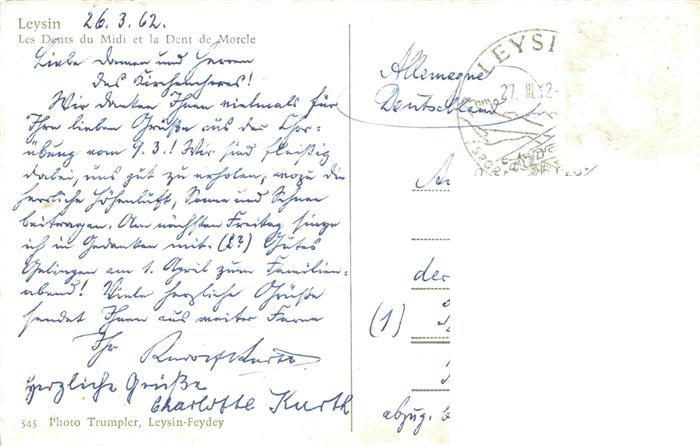 Leysin 26.3.62.
Les Dents du Midi et la Dent de Morcle
Liebe Damen und Herren
des Kirchenchores!
Wir danken Ihnen vielmals für
Ihre lieben Grüße aus der Chor-
übung vom 9.3.! Wir sind fleißig
dabei, uns gut zu erholen, wozu die
herrliche Höhenluft, Sonne und Schnee
beitragen. Am nächsten Freitag singe
ich in Gedanken mit. (2?) Gutes
Gelingen am 1. April zum Familien-
abend! Viele herzliche Grüße
sendet Ihnen aus weiter Ferne
Ihr Rudolf Kurth
Herzliche Grüße
Charlotte Kurth
545 Photo Trumpler, Leysin-Feydey
LEYSI
27. III. 62-
SPORT
Allemagne
Deutschland
An
der
(1)
abzug.